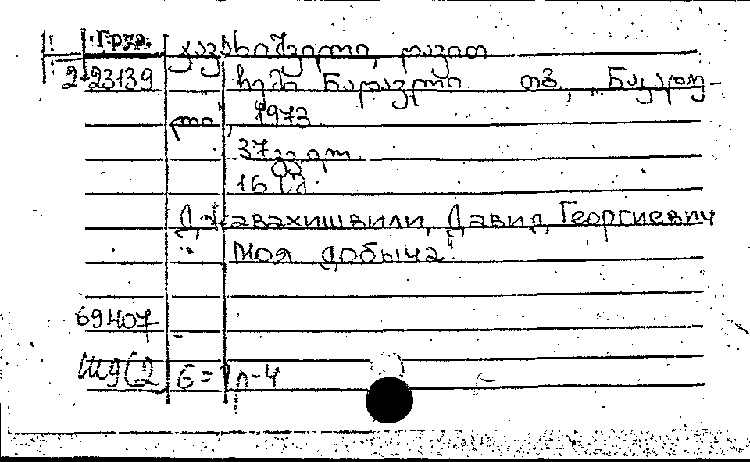 Груз. ჯავახიშვილი, დავით
2-23139 ჩემი ნადავლი თბ., „ნაკადუ-
ლი", 1973
37 გვ.
16 სმ.
Джавахишвили, Давид Георгиевич
Моя добыча
69407
Ш9(2 Б=1л-4